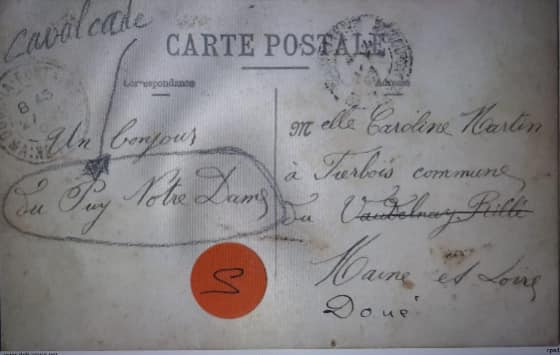 Cavalcade
CARTE POSTALE
Correspondance
Adresse
Un bonjour
du Puy Notre Dame
Melle Caroline Martin
à Tierbois commune
du Vaudelnay Rillé
Maine et Loire
Doué
S